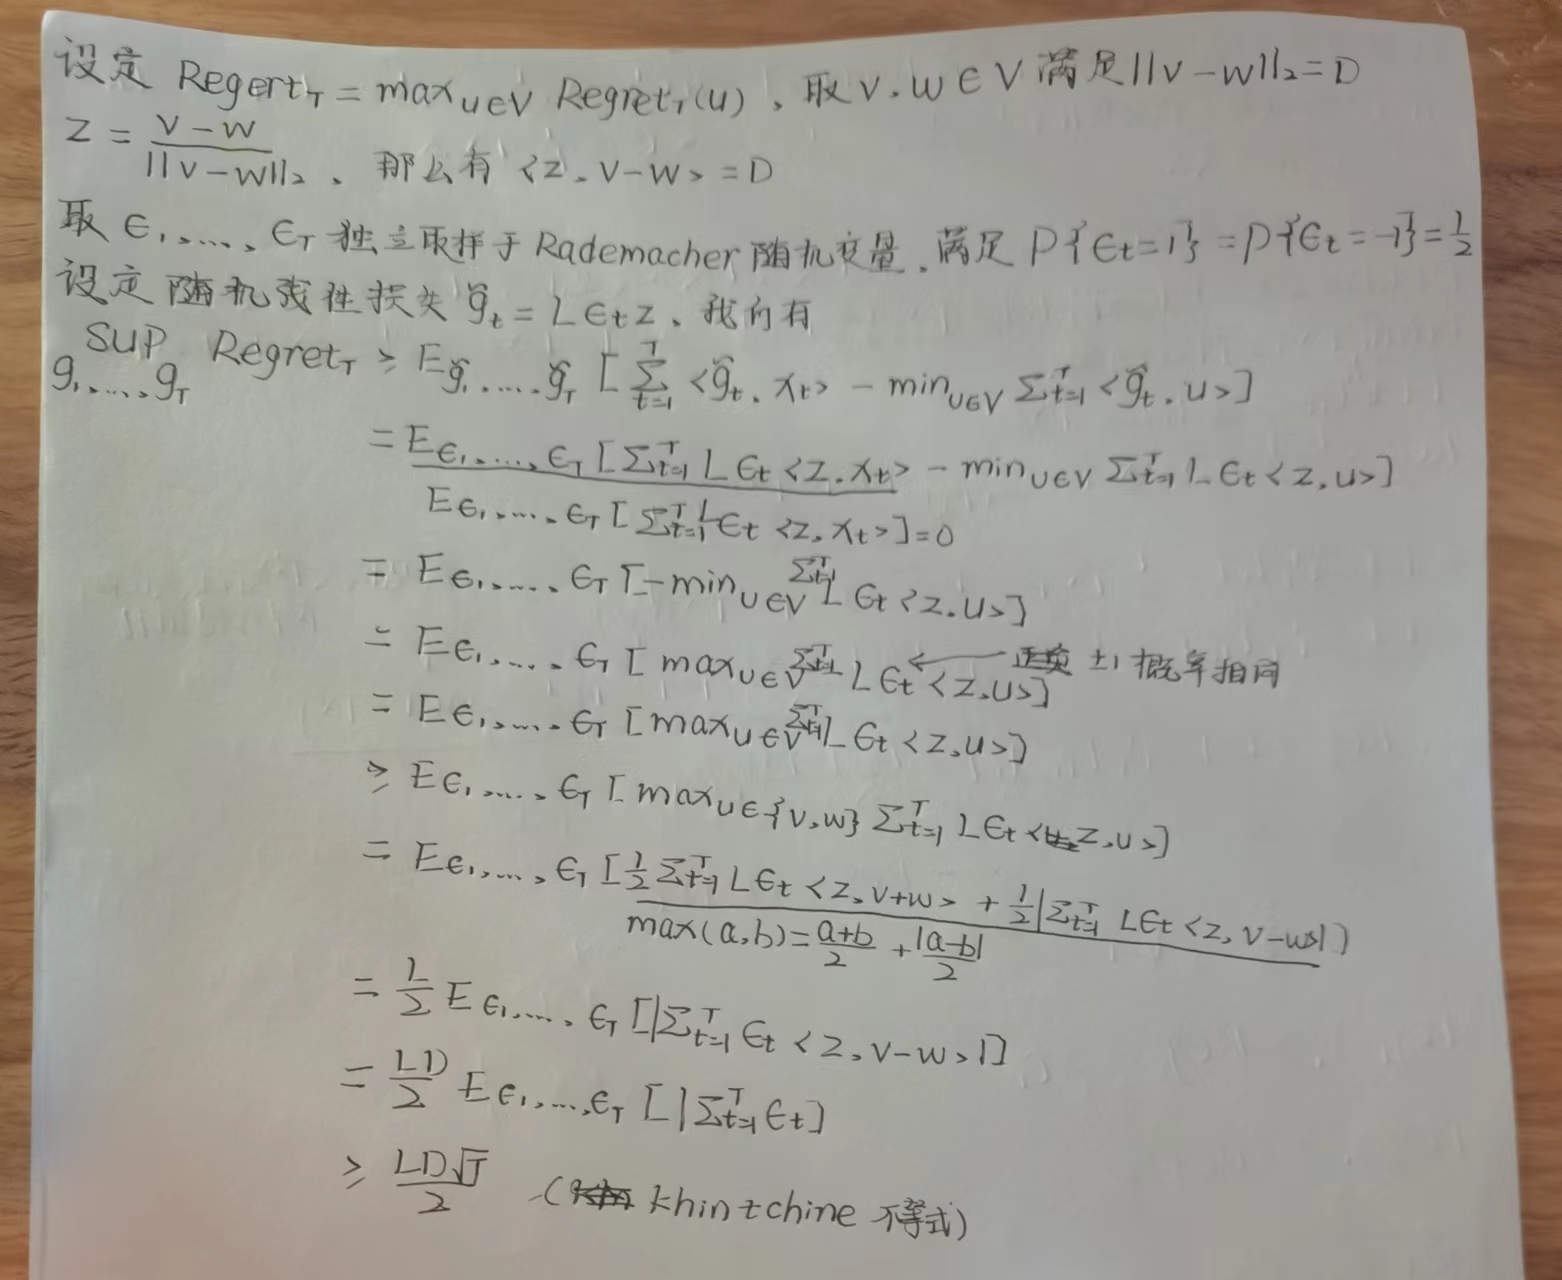 设定 Regert_T = max_{u∈V} Regret_T(u)，取 v.w∈V 满足||v-w||₂=D
z = \frac{v-w}{||v-w||₂}、那么有 <z.v-w> = D
取 ϵ₁,...,ϵ_T 独立取样于Rademacher随机变量.满足 P{ϵt=1} =P{ϵt=-1}=\frac{1}{2}
设定随机线性损失 g̃_t = Lϵtz、我们有
sup_{g₁,...,g_T} Regret_T ≥ E_{g̃₁,...,g̃_T} [∑_{t=1}^T <g̃_t.x_t> - min_{u∈V} ∑_{t=1}^T <g̃_t.u>]
= E_{ϵ₁,...,ϵ_T} [∑_{t=1}^T Lϵt<z.x_t> - min_{u∈V} ∑_{t=1}^T Lϵt<z,u>]
E_{ϵ₁,...,ϵ_T} [∑_{t=1}^T Lϵt <z,x_t>]=0
= E_{ϵ₁,...,ϵ_T} [-min_{u∈V} ∑_{t=1}^T Lϵt<z.u>]
= E_{ϵ₁,...,ϵ_T} [max_{u∈V} ∑_{t=1}^T Lϵt<z,u>] ← ±1概率相同
= E_{ϵ₁,...,ϵ_T} [max_{u∈V} ∑_{t=1}^T Lϵt<z,u>]
≥ E_{ϵ₁,...,ϵ_T} [max_{u∈{v,w}} ∑_{t=1}^T Lϵt<z,u>]
= E_{ϵ₁,...,ϵ_T} [\frac{1}{2}∑_{t=1}^T Lϵt<z,v+w> + \frac{1}{2}|∑_{t=1}^T Lϵt<z,v-w>|]
max(a,b)=\frac{a+b}{2} + \frac{|a-b|}{2}
= \frac{L}{2} E_{ϵ₁,...,ϵ_T} [|∑_{t=1}^T ϵt<z,v-w>|]
= \frac{LD}{2} E_{ϵ₁,...,ϵ_T} [|∑_{t=1}^T ϵt]
≥ \frac{LD√T}{2} (khintchine不等式)